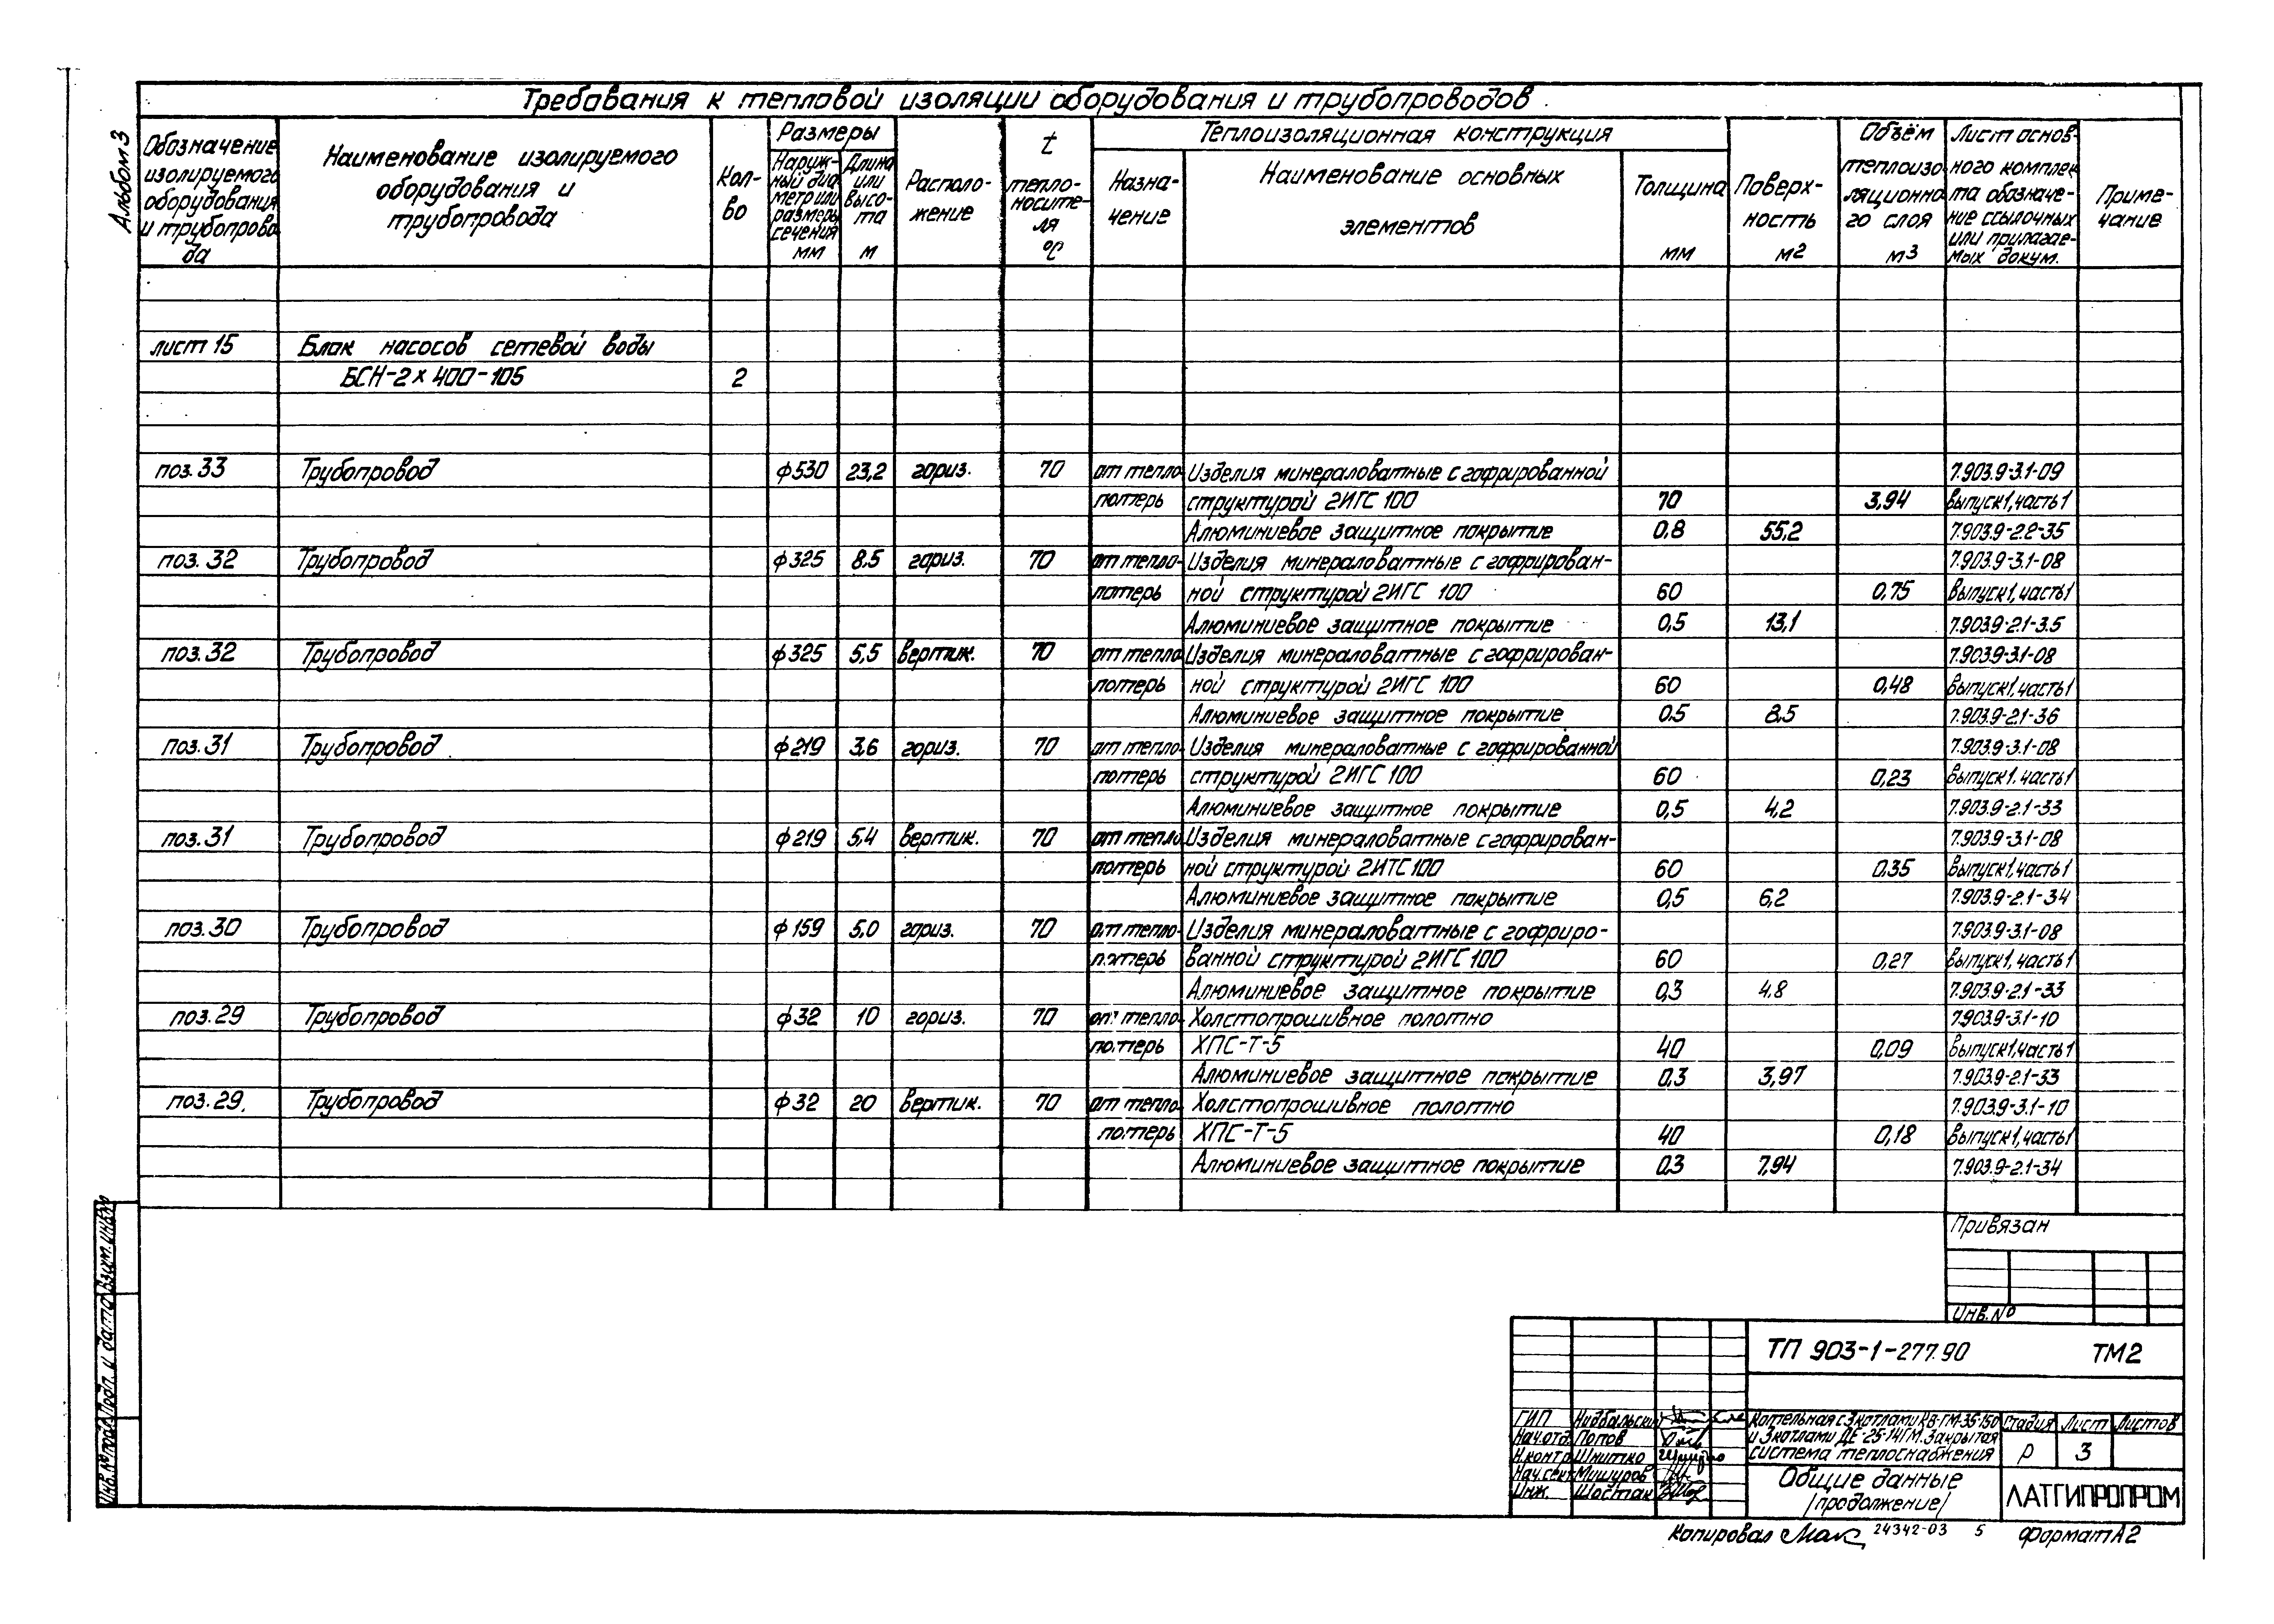 Альбом 3
Требования к тепловой изоляции оборудования и трубопроводов
Обозначение изолируемого оборудования и трубопровода
Наименование изолируемого оборудования и трубопровода
Кол-во
Размеры
Наружный диаметр или размеры сечения мм
Длина или высота м
Расположение
t теплоносителя °С
Теплоизоляционная конструкция
Назначение
Наименование основных элементов
Толщина мм
Поверхность м2
Объём теплоизоляционного слоя м3
Лист основного комплекта обозначение ссылочных или прилагаемых докум.
Примечание
лист 15 Блок насосов сетевой воды
БСН-2×400-105 2
поз. 33 Трубопровод ф530 23,2 гориз. 70 от тепло- Изделия минераловатные с гофрированной 7.903.9-3.1-09
потерь структурой 2ИГС 100 70 3,94 выпуск1, часть1
Алюминиевое защитное покрытие 0,8 55,2 7.903.9-2.2-35
поз. 32 Трубопровод ф325 8.5 гориз. 70 от тепло- Изделия минераловатные с гофрирован- 7.903.9-3.1-08
потерь ной структурой 2ИГС 100 60 0,75 выпуск1, часть1
Алюминиевое защитное покрытие 0,5 13,1 7.903.9-2.1-3.5
поз. 32 Трубопровод ф325 5,5 вертик. 70 от тепло Изделия минераловатные с гофрирован- 7.903.9-3.1-08
потерь ной структурой 2ИГС 100 60 0,48 выпуск1, часть1
Алюминиевое защитное покрытие 0.5 8.5 7.903.9-2.1-36
поз. 31 Трубопровод ф219 3,6 гориз. 70 от тепло- Изделия минераловатные с гофрированной 7.903.9-3.1-08
потерь структурой 2ИГС 100 60 0,23 выпуск1. часть1
Алюминиевое защитное покрытие 0,5 4,2 7.903.9-2.1-33
поз. 31 Трубопровод ф219 5,4 вертик. 70 от тепло Изделия минераловатные с гофрирован- 7.903.9-3.1-08
потерь ной структурой 2ИТС 100 60 0,35 выпуск1, часть1
Алюминиевое защитное покрытие 0,5 6,2 7.903.9-2.1-34
поз. 30 Трубопровод ф159 5,0 гориз. 70 от тепло- Изделия минераловатные с гофриро- 7.903.9-3.1-08
потерь ванной структурой 2ИГС 100 60 0,27 выпуск1, часть1
Алюминиевое защитное покрытие 0,3 4,8 7.903.9-2.1-33
поз. 29 Трубопровод ф32 10 гориз. 70 от тепло- Холстопрошивное полотно 7.903.9-3.1-10
потерь ХПС-Т-5 40 0,09 выпуск1, часть1
Алюминиевое защитное покрытие 0,3 3,97 7.903.9-2.1-33
поз. 29. Трубопровод ф32 20 вертик. 70 от тепло- Холстопрошивное полотно 7.903.9-3.1-10
потерь ХПС-Т-5 40 0,18 выпуск1, часть1
Алюминиевое защитное покрытие 0.3 7,94 7.903.9-2.1-34
Привязан
Инв. №
ТП 903-1-277.90 ТМ2
ГИП Нидбальский
Нач.отд. Попов
Н.контр Шнитко
Нач.сект Мишуров
Инж. Шостак
Котельная с 3 котлами КВ-ГМ-35-150
и 3 котлами ДЕ-25-14ГМ. Закрытая
система теплоснабжения
Стадия Лист Листов
Р 3
Общие данные
/продолжение/
ЛАТГИПРОПРОМ
Инв. № подл. Подп. и дата Взам. инв. №
Копировал 24342-03 5 Формат А2